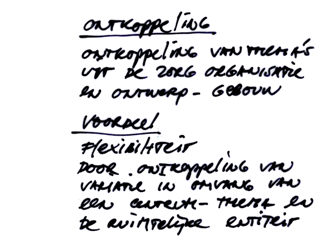 ONTKOPPELING
ONTKOPPELING VAN THEMA'S
UIT DE ZORG ORGANISATIE
EN ONTWERP - GEBOUW
VOORDEEL
FLEXIBILITEIT
DOOR ONTKOPPELING VAN
VARIATIE IN OMVANG VAN
EEN CENTRUM - THEMA EN
DE RUIMTELIJKE ENTITEIT